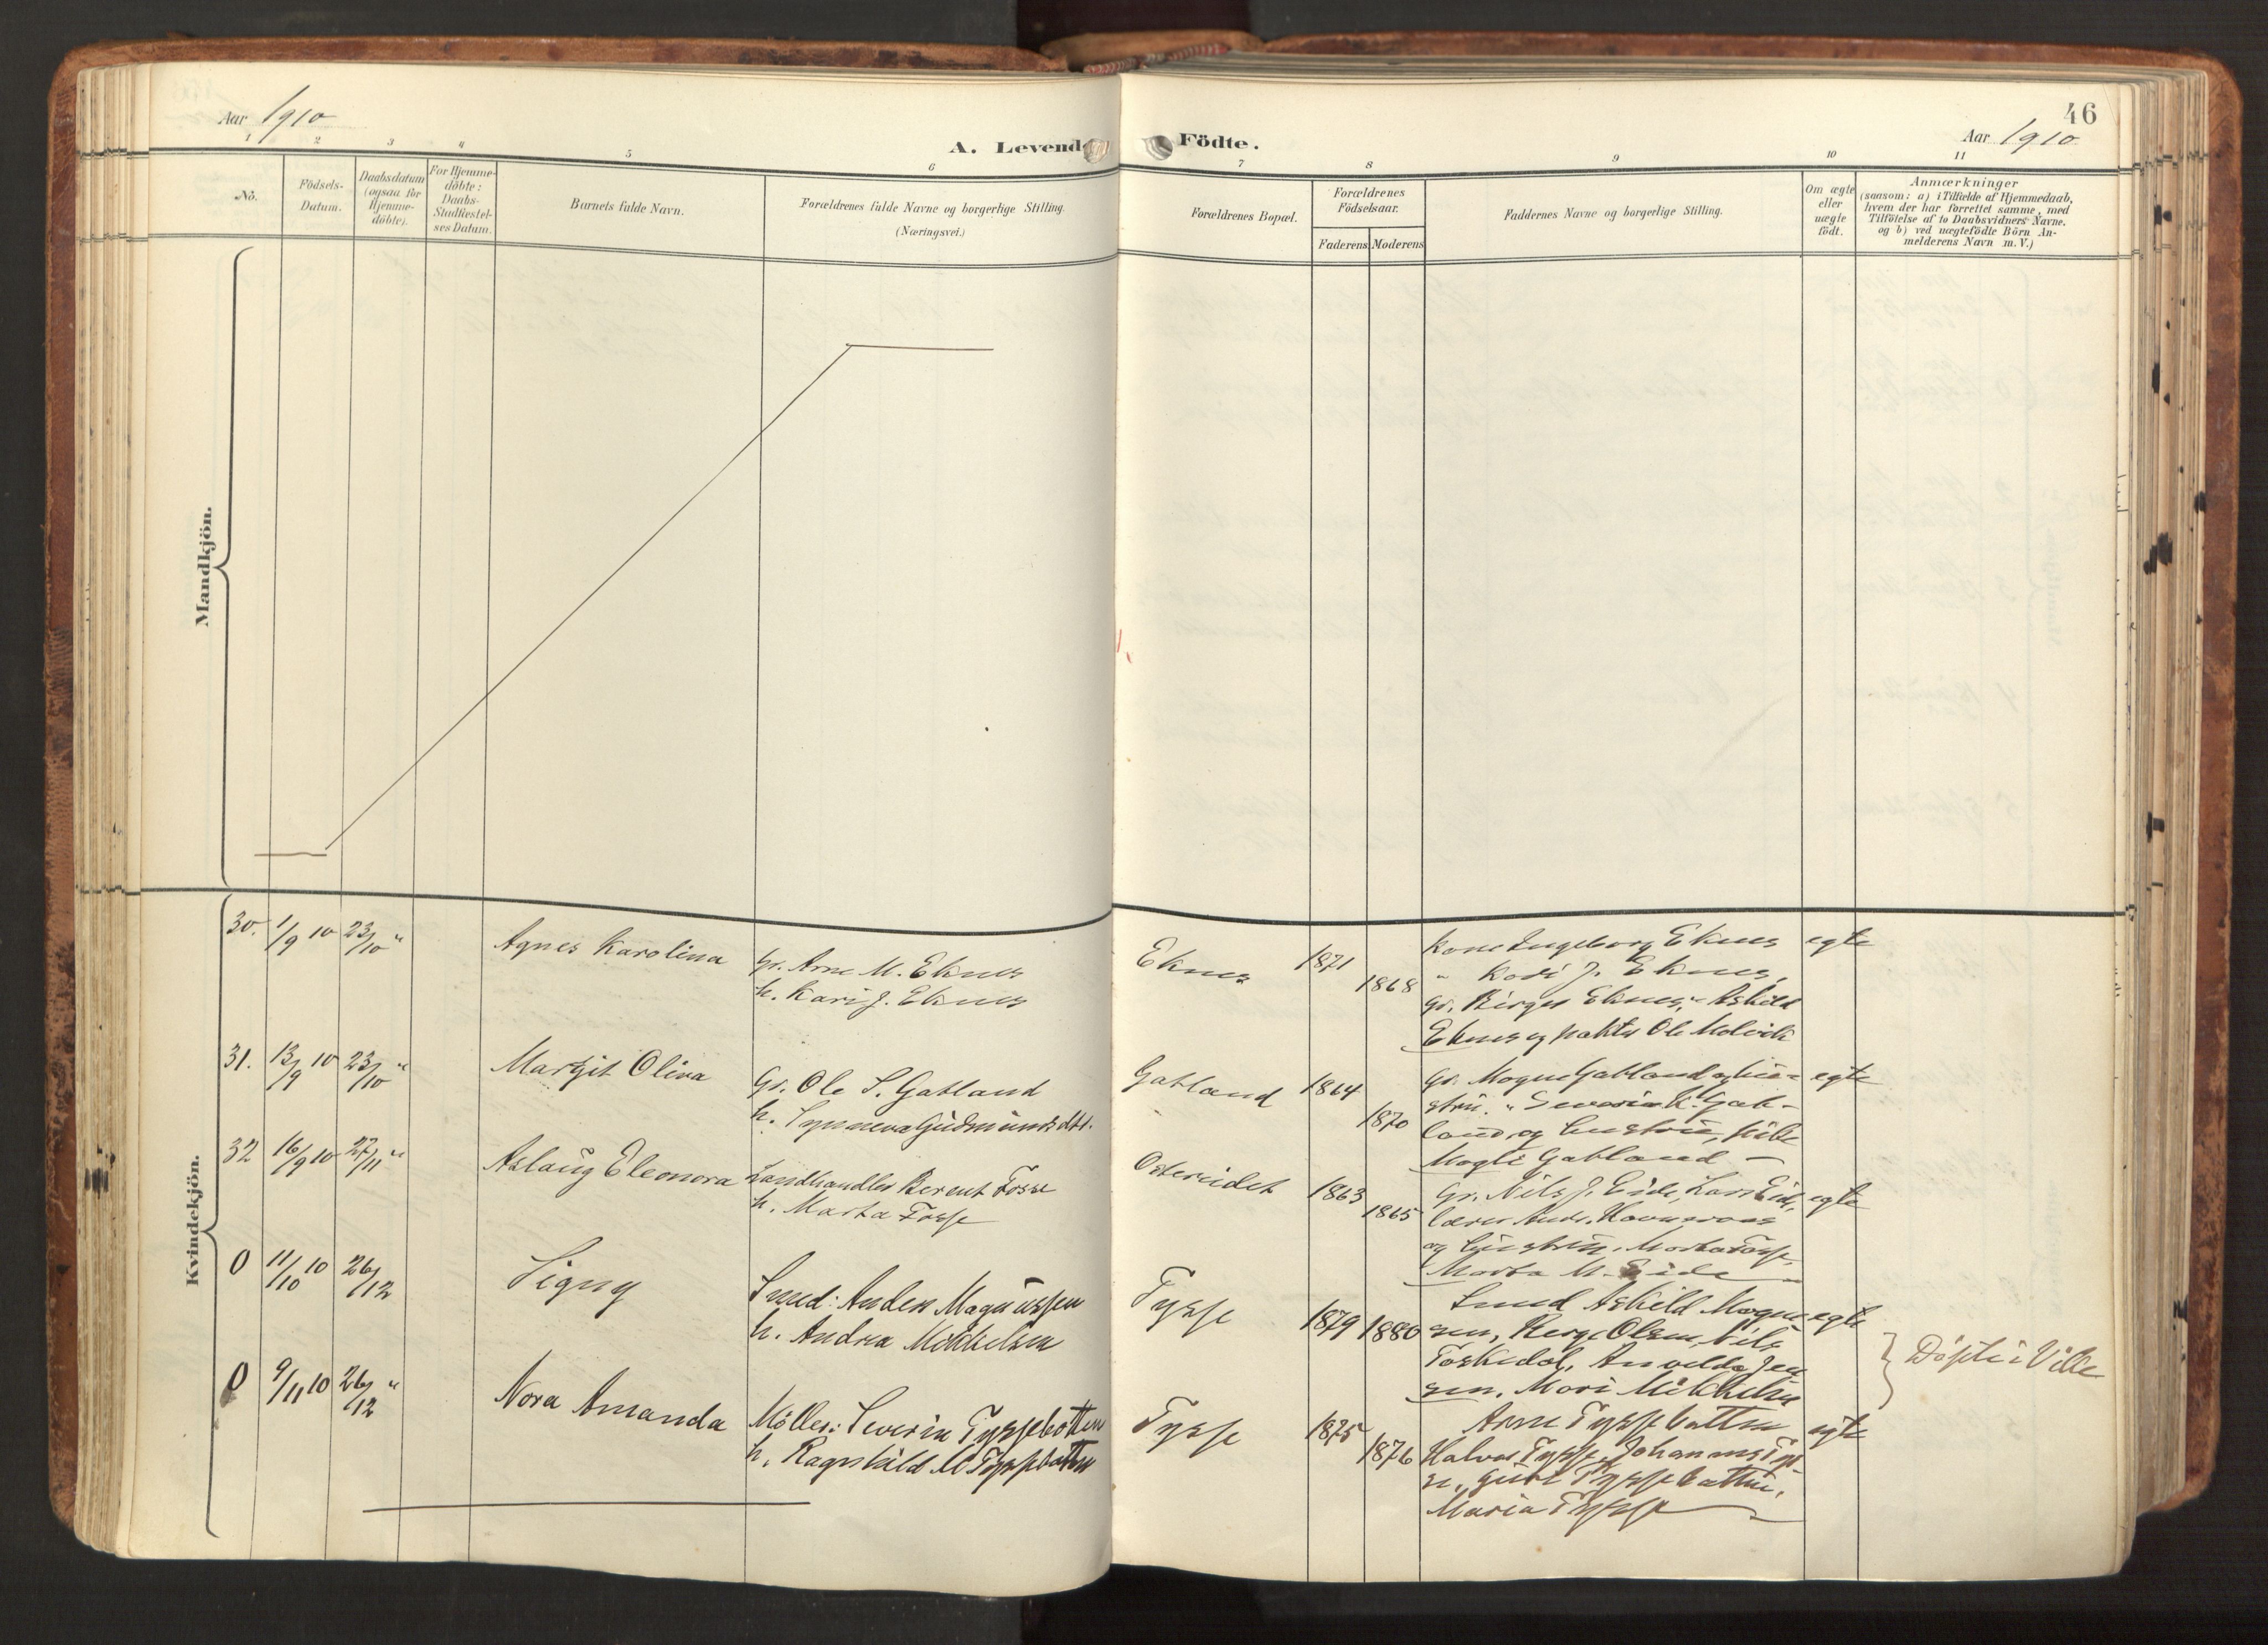 46
Aar 1910
A. Levende Födte.
Aar 1910
1 2 3 4 5 6 7 8 9 10 11
No.
Födsels-
Datum.
Daabsdatum
(ogsaa for
Hjemme-
döbte).
For Hjemme-
döbte:
Daabs-
Stadfæstel-
ses Datum.
Barnets fulde Navn.
Forældrenes fulde Navne og borgerlige Stilling.
(Næringsvei.)
Forældrenes Bopæl.
Forældrenes
Födselsaar.
Faderens Moderens
Faddernes Navne og borgerlige Stilling.
Om ægte
eller
uægte
födt.
Anmærkninger
(saasom: a) i Tilfælde af Hjemmedaab,
hvem der har forrettet samme, med
Tilföielse af to Daabsvidners Navne.
og b) ved uægtefödte Börn An-
melderens Navn m.V.)
Mandkjön.
Kvindekjön.
30. 1/9 10 23/10 "
Agnes Karolina
Gr. Arne M. Eknes
h. Kari J. Eknes
Eknes 1871 1868
Kone Ingeborg Eknes
" Kari J. Eknes,
Gr. Birger Eknes, " Askild
Eknes og Ole Molvik
egte
31. 13/9 10 23/10 "
Margit Oliva
Gr. Ole S. Gatland
h. Synneva Gudmundsdtr.
Gatland 1864 1870
Gr. Mogne Gatland og hu-
stru. " Severin K. Gat-
land og hustru, pike
Mogli Gatland
egte
32 16/9 10 27/11 "
Aslaug Eleonora
Landhandler Berent Fosse
h. Marta Fosse
Ostereidet 1863 1865
Gr. Nils J. Eide, Lars Eide,
lærer Andr.
og hustru, Marta Fosse,
Marta M. Eide
egte
0 11/10 10 26/12
Signy
Smed: Anders Magnussen
h. Andrea Mikkelsen
Tysse 1879 1880
Smed Askild Mogn
sen, Olsen, Nils
Toskedal, Jen
sen, Mari Mikkelsen
egte
0 9/11 10 26/12 "
Nora Amanda
Möller: Severin Tyssebotten
h. Ragnhild M Tyssebotten
Tysse 1875 1876
Arne Tyssebotten
Halvor Tysse, Johannes Tys
se, Guri Tyssebotten,
Maria Tysse
egte
Döpte i Ville